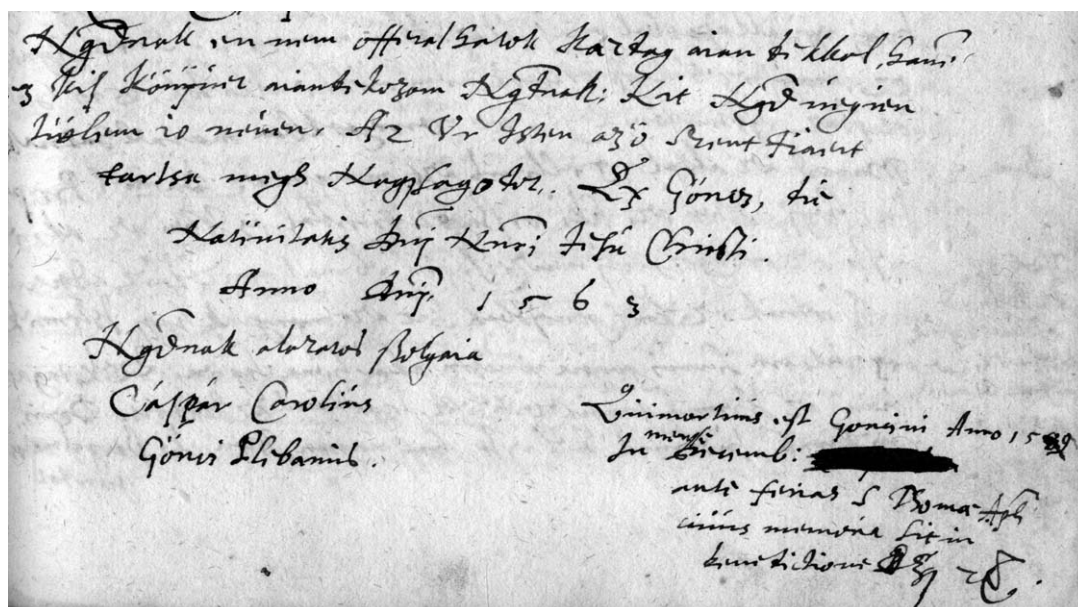 Ngdnak en nem offeralhatok hartag aiandekkal, hanē
ez kis könÿuet aiandekozom Ngdnak: Kit Ngd uegien
tüölem io neuen. Az Vr Isten azö szent fiaert
tartsa megh Nagÿsagodot. Ex Göncz, die
Natiuitatis Dnj Nrj Jesu Christi.
Anno Dnj. 1563
Ngdnak alazatos szolgaia
Cáspár Carolius
Gönci Plebanus.
Qui mortuus est Goncini Anno 15
In mense Decemb:
ante ferias S Thomæ Apli
cuius memoria sit in
benedictione